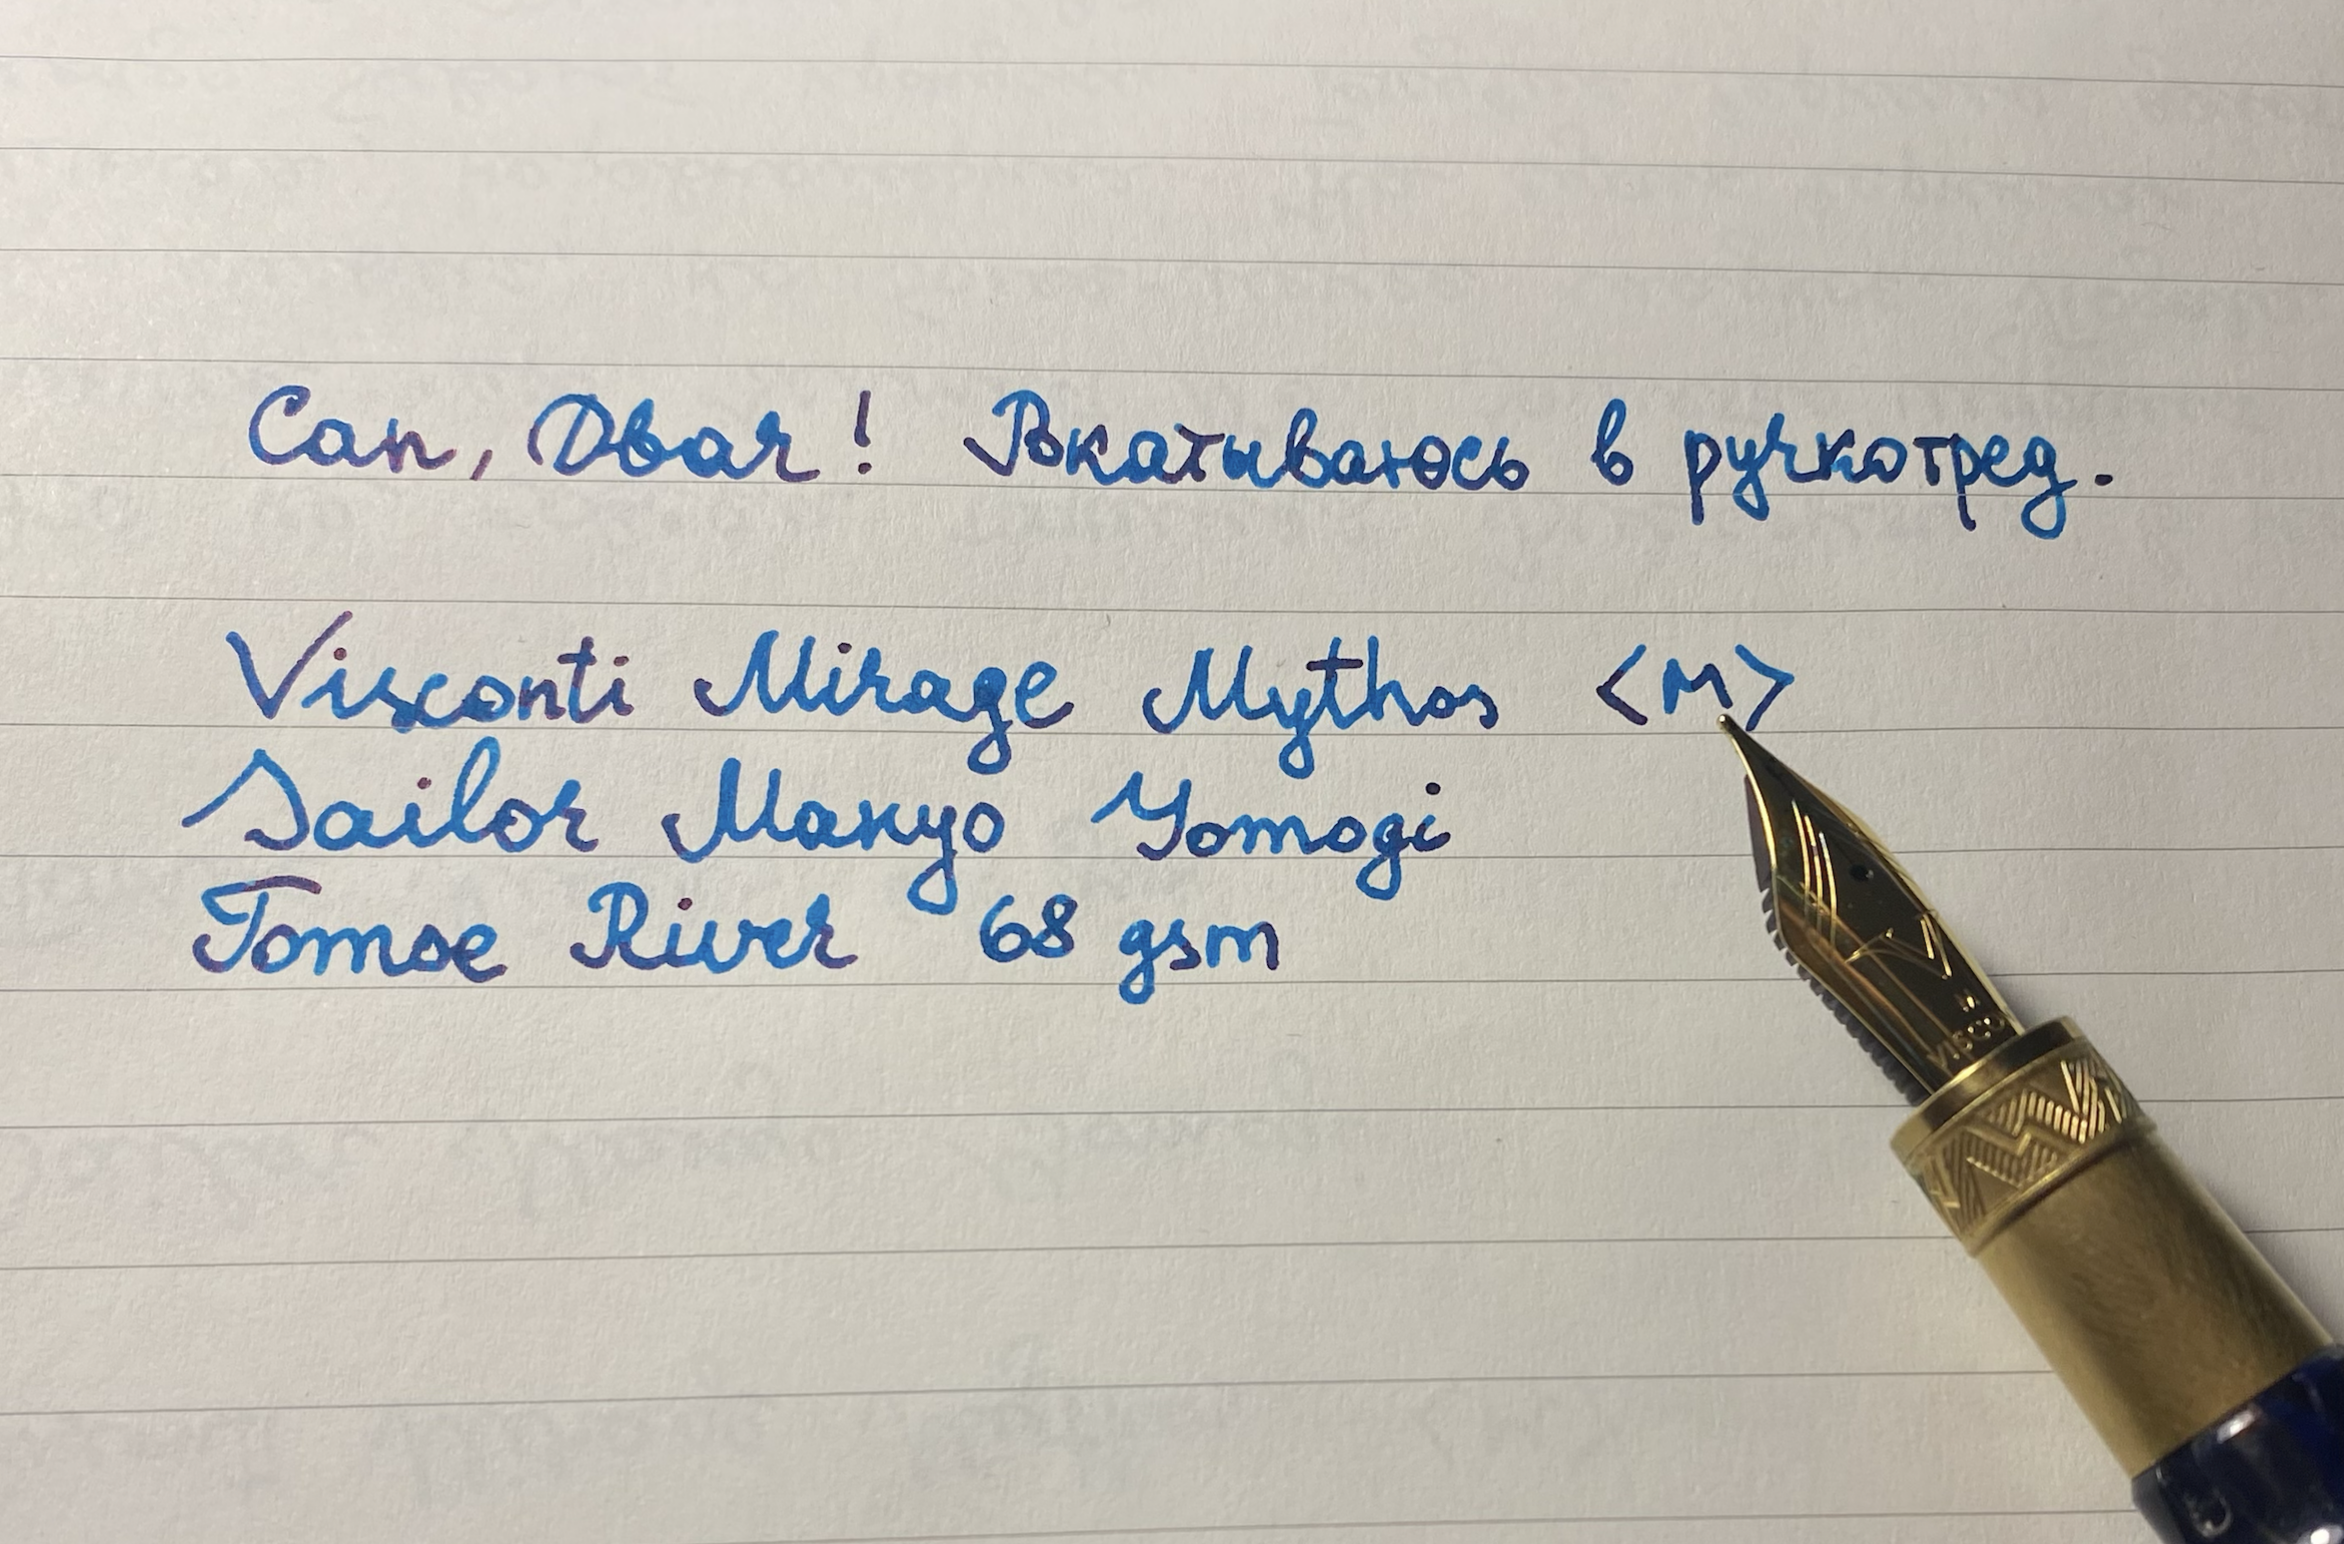 Сап, Двач! Вкатываюсь в ручкотред.
Visconti Mirage Mythos <M>
Sailor Manyo Yomogi
Tomoe River 68 gsm
M